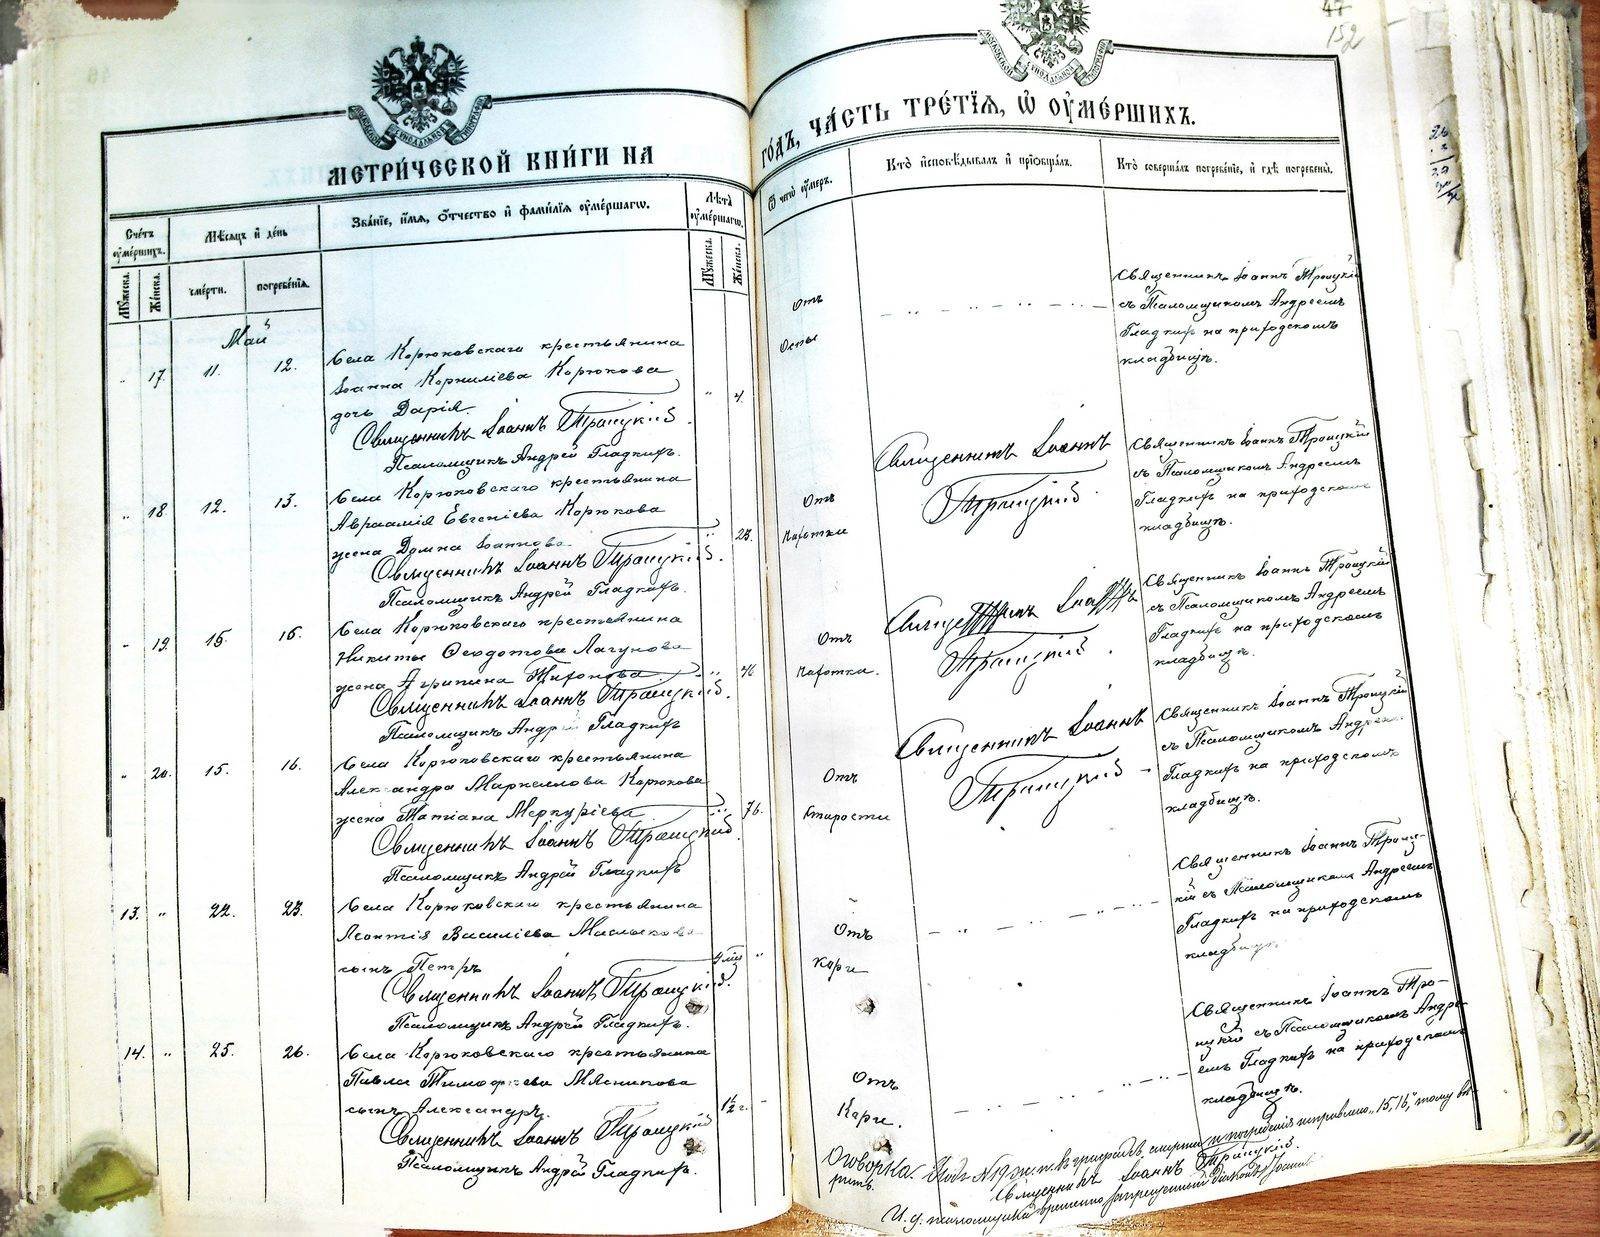 47
152
МЕТРИ́ЧЕСКОЙ КНИ́ГИ НА
ГО́ДЪ, ЧА́СТЬ ТРЕ́ТІѦ, Ѡ҆ ОУ҆МЕ́РШИХЪ.
Сче́тъ оу҆ме́ршихъ.
Мꙋ́жеска.
Же́нска.
Мѣ́сѧцъ и҆ де́нь
сме́рти.
погребе́нїѧ.
Зва́нїе, и҆́мѧ, о҆́тчество и҆ фами́лїѧ оу҆ме́ршагѡ.
Лѣ́та оу҆ме́ршагѡ.
Мꙋ́жеска.
Же́нска.
Ѿ чегѡ̀ оу҆́меръ.
Кто̀ и҆сповѣ́дывалъ и҆ прїѡбща́лъ.
Кто̀ соверша́лъ погребе́нїе, и҆ гдѣ̀ погребены̀.
Май
17. 11. 12.
Села Корюковскаго крестьянина
Іоанна Корниліева Корюкова
дочь Дарія. 4.
Священникъ Іоаннъ Троицкій.
Псаломщикъ Андрей Гладкихъ.
Отъ
Оспы
Священникъ Іоаннъ Троицкій
съ Псаломщикомъ Андреемъ
Гладкихъ на приходскомъ
кладбищѣ.
18. 12. 13.
Села Корюковскаго крестьянина
Авраамія Евгеніева Корюкова
жена Домна Іоаннова 23.
Священникъ Іоаннъ Троицкій.
Псаломщикъ Андрей Гладкихъ.
Отъ
Чахотки
Священникъ Іоаннъ
Троицкій.
Священникъ Іоаннъ Троицкій
съ Псаломщикомъ Андреемъ
Гладкихъ на приходскомъ
кладбищѣ.
19. 15. 16.
Села Корюковскаго крестьянина
Никиты Ѳеодотова Лагунова
жена Агрипина Тихонова 46
Священникъ Іоаннъ Троицкій.
Псаломщикъ Андрей Гладкихъ
Отъ
Чахотки.
Священникъ Іоаннъ
Троицкій.
Священникъ Іоаннъ Троицкій
съ Псаломщикомъ Андреемъ
Гладкихъ на приходскомъ
кладбищѣ.
20. 15. 16.
Села Корюковскаго крестьянина
Александра Маркелова Корюкова
жена Татіана Меркуріева 76.
Священникъ Іоаннъ Троицкій.
Псаломщикъ Андрей Гладкихъ
Отъ
Старости
Священникъ Іоаннъ
Троицкій
Священникъ Іоаннъ Троицкій
съ Псаломщикомъ Андреемъ
Гладкихъ на приходскомъ
кладбищѣ.
13. 22. 23.
Села Корюковскаго крестьянина
Леонтія Василіева
сынъ Петръ
Священникъ Іоаннъ Троицкій.
Псаломщикъ Андрей Гладкихъ.
Отъ
Кори
Священникъ Іоаннъ Троиц-
кій съ Псаломщикомъ Андреемъ
Гладкихъ на приходскомъ
кладбищѣ
14. 25. 26.
Села Корюковскаго крестьянина
Павла Тимофеева Мясникова
сынъ Александръ. 1½ г.
Священникъ Іоаннъ Троицкій
Псаломщикъ Андрей Гладкихъ.
Отъ
Кори.
Священникъ Іоаннъ Тро-
ицкій съ Псаломщикомъ Андре-
емъ Гладкихъ на приходскомъ
кладбищѣ.
Оговорка. Подъ №19 въ графахъ смерти и погребенія исправлено „15, 16,“ тому вѣ-
рить.
Священникъ Іоаннъ Троицкій.
И. д. псаломщика временно запрещенный діаконъ